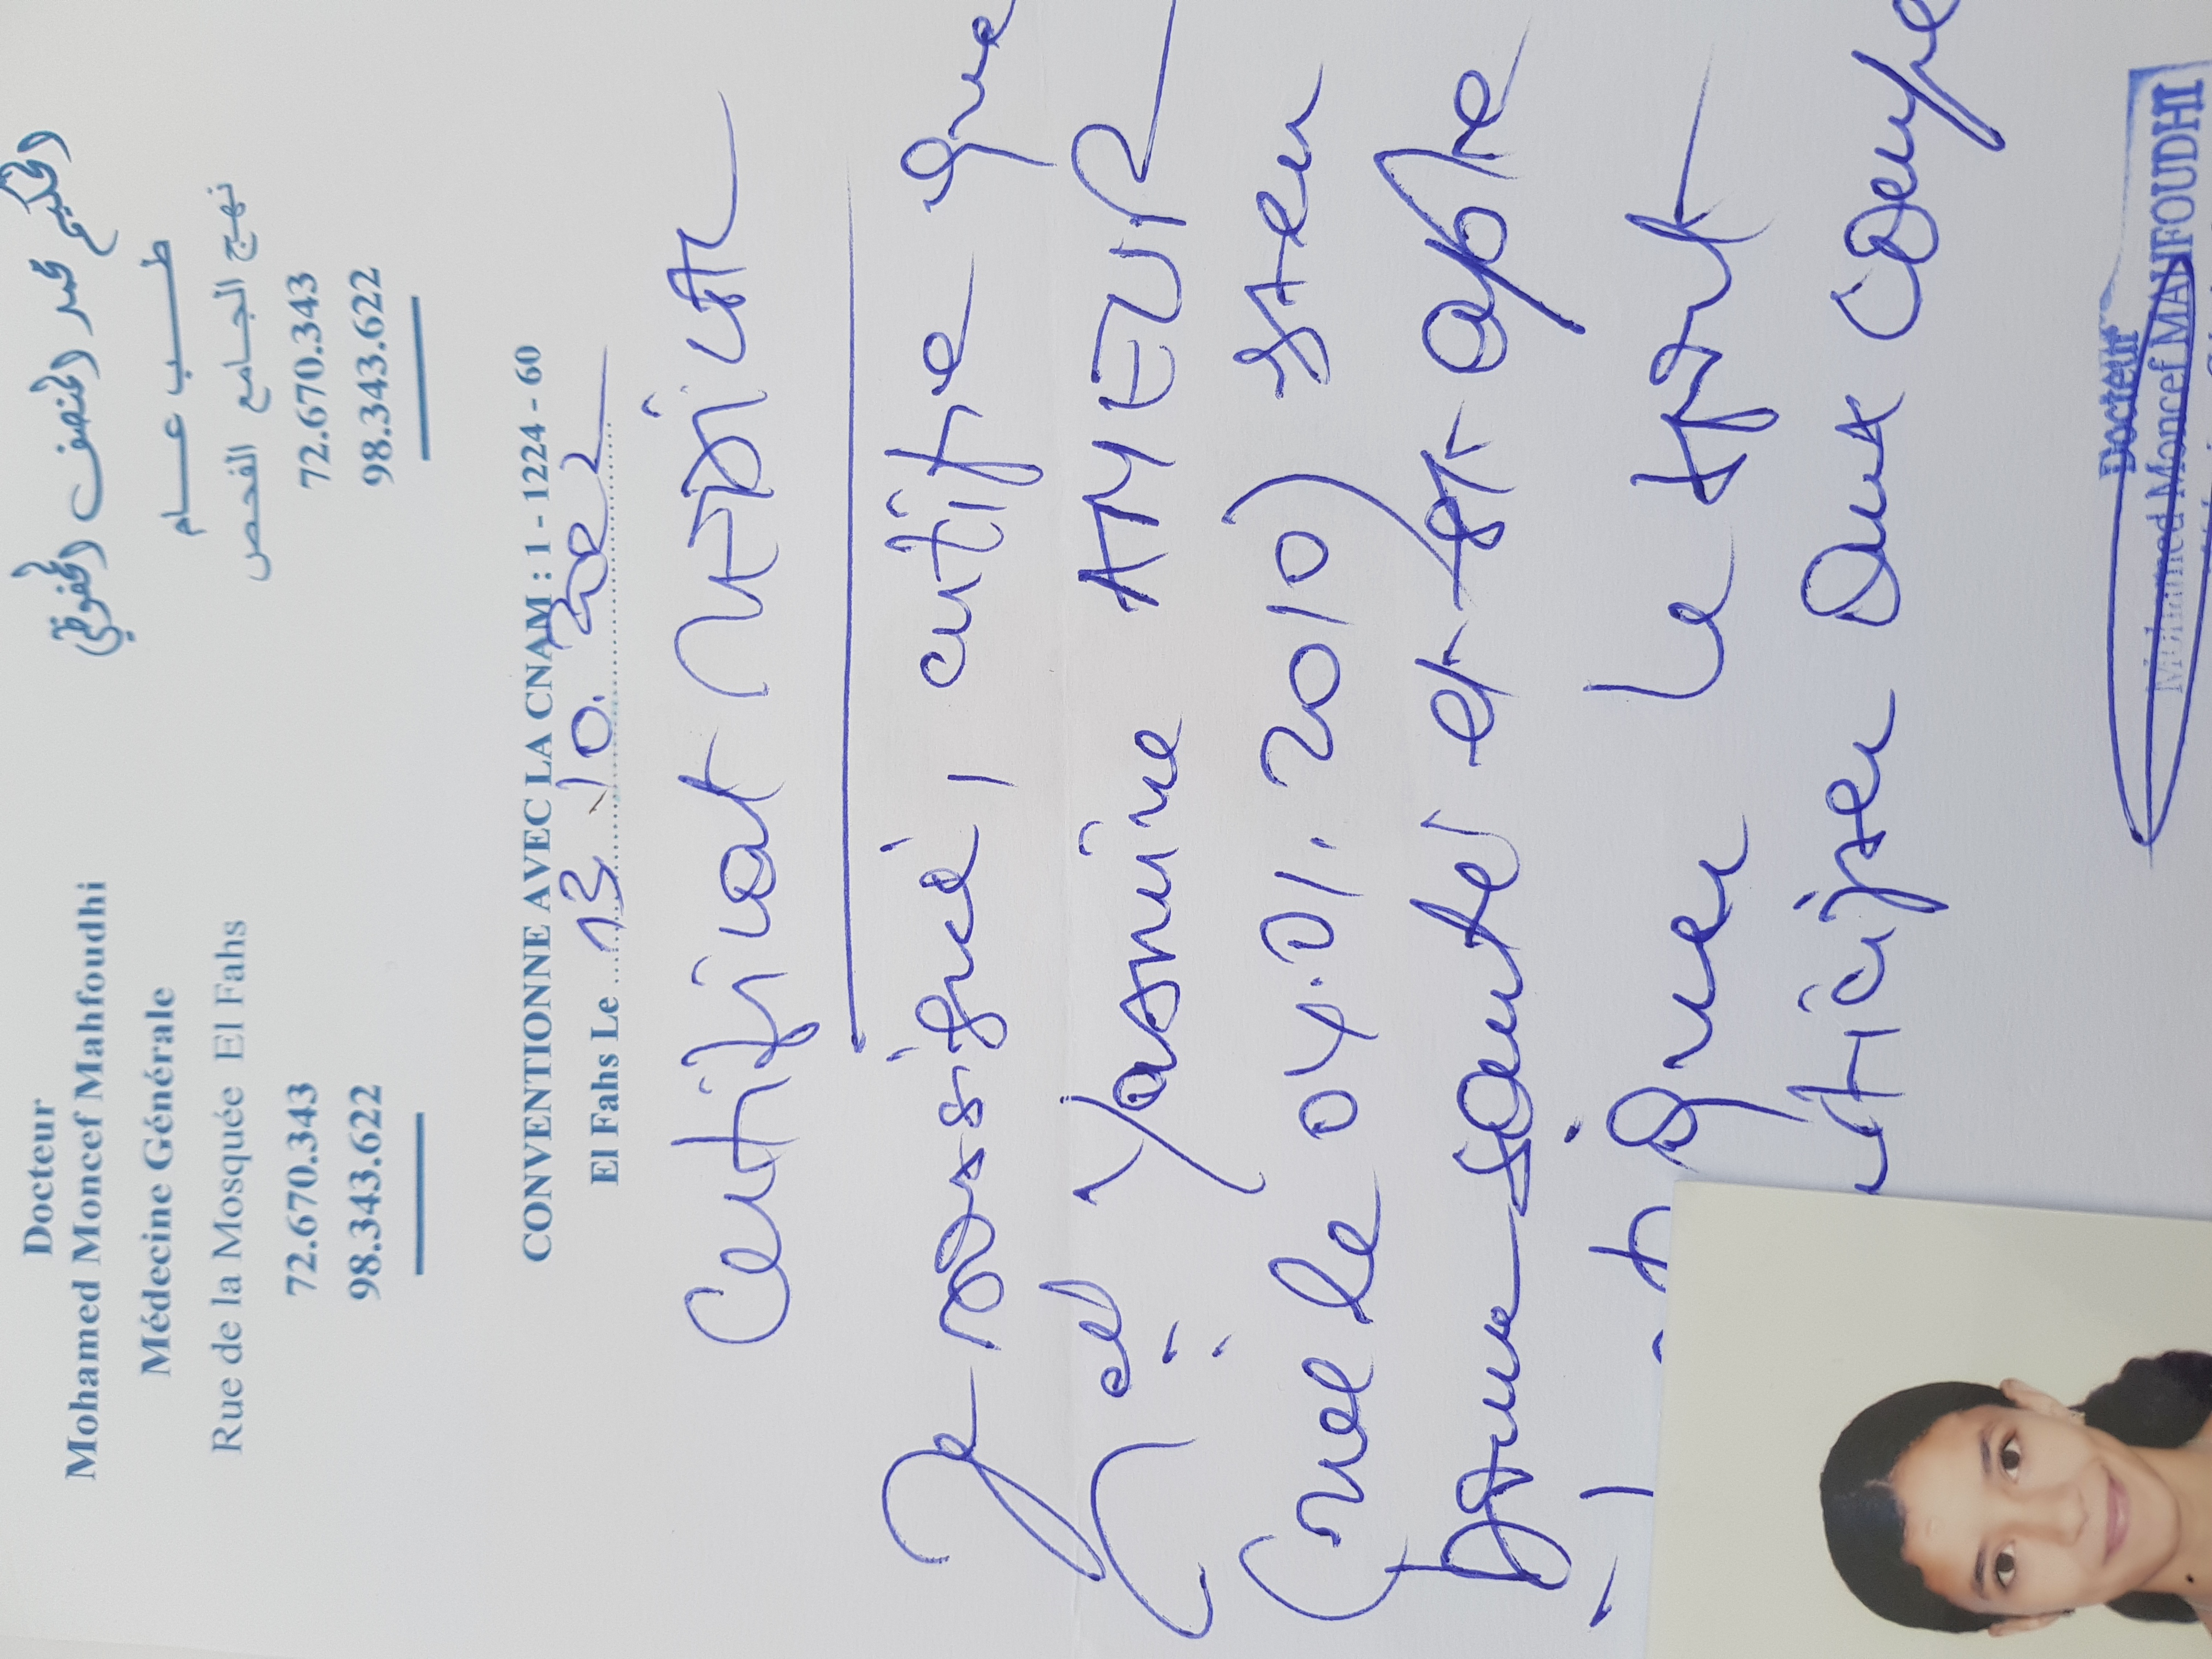 Docteur
Mohamed Moncef Mahfoudhi
Médecine Générale
Rue de la Mosquée El Fahs
72.670.343
98.343.622
الحكيم محمد المنصف المحفوظي
طب عام
نهج الجامع الفحص
72.670.343
98.343.622
CONVENTIONNE AVEC LA CNAM : 1 - 1224 - 60
El Fahs Le 13 10. 2022
Certificat Medical
Je soussigné, certifie que
Yasmine AMEUR
(née le 04.01.2010) est en
bonne santé et est apte
à pratiquer le sport
participer aux
Docteur
Mohamed Moncef MAHFOUDHI